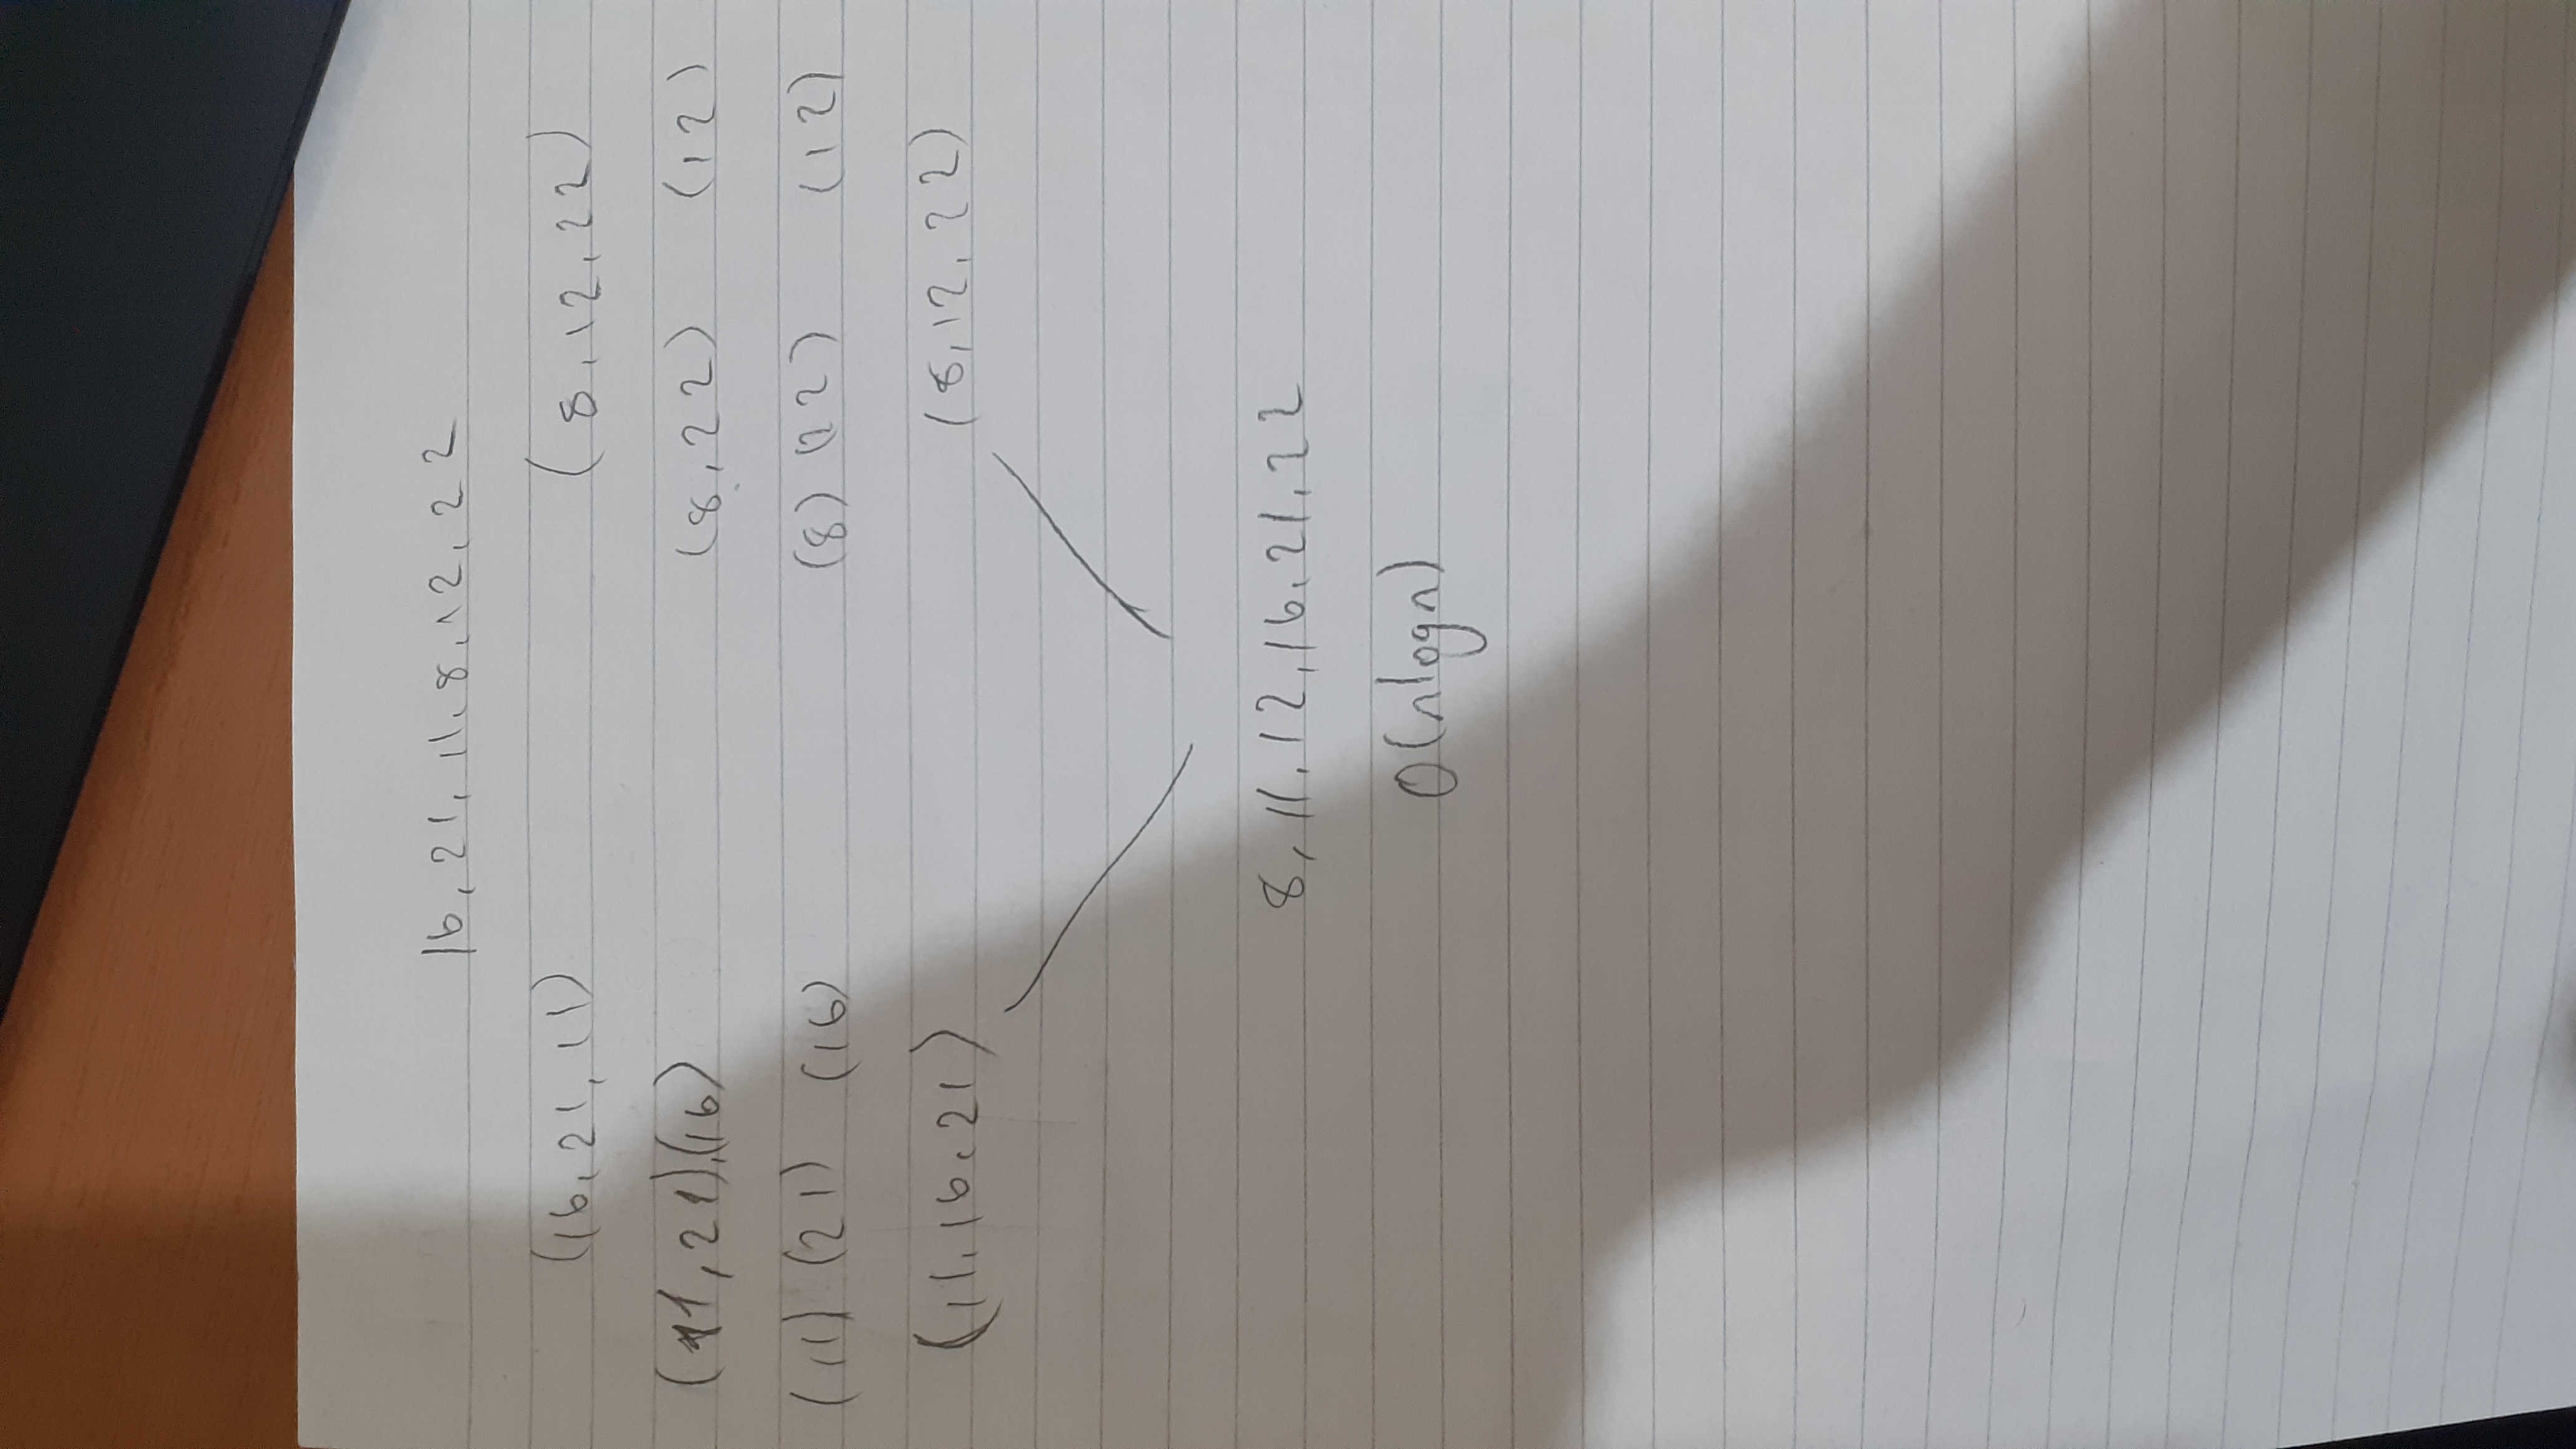 16, 21, 11, 8, 12, 22
(16, 21, 11) (8, 12, 22)
(11, 21), (16) (8, 22) (12)
(11) (21) (16) (8) (22) (12)
(11, 16, 21) (8, 12, 22)
8, 11, 12, 16, 21, 22
O(nlogn)